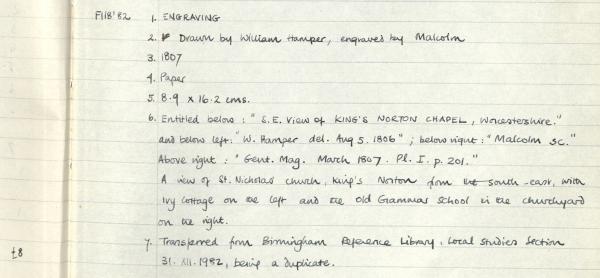 F118'82 1. ENGRAVING
2. Drawn by William Hamper, engraved by Malcolm
3. 1807
4. Paper
5. 8.9 x 16.2 cms.
6. Entitled below: "S.E. View of KING'S NORTON CHAPEL, Worcestershire."
and below left: "W. Hamper del. Aug 5. 1806"; below right: "Malcolm sc."
Above right: "Gent. Mag. March 1807. Pl. I. p. 201."
A view of St. Nicholas' church, King's Norton from the south-east, with
Ivy Cottage on the left and the Old Grammar School in the churchyard
on the right.
7. Transferred from Birmingham Reference Library, Local Studies Section
£8 31. XII. 1982, being a duplicate.